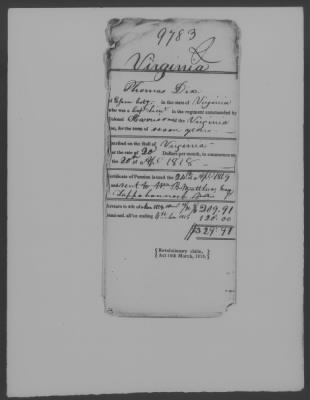 9783
Virginia
Thomas Dix
of Essex in the state of Virginia
who was a Capt Lieut in the regiment commanded by
Colonel Harrison of the Virginia
line, for the term of seven years
Inscribed on the Roll of Virginia
at the rate of 20 Dollars per month, to commence on
the 20th of April 1818
Certificate of Pension issued the 24th of Apl 1819
and sent to Wm B. Matthews Esq
Arrears to 4th of 209.91
Semi-anl. all'ce ending 4th 120.00
$329.91
{Revolutionary claim,
Act 18th March, 1818.}